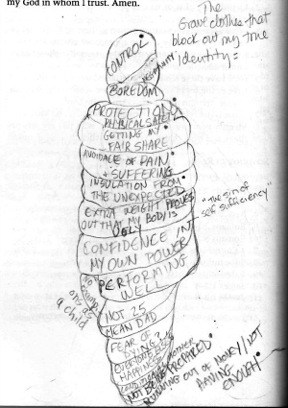 my God in whom I trust. Amen.
The
Grave clothes that
block out my true
identity:
CONTROL
NEGATIVITY
BOREDOM
PROTECTION
PHYSICAL SAFETY
GETTING MY
FAIR SHARE
AVOIDANCE OF PAIN
+ SUFFERING
INSULATION FROM
THE UNEXPECTED
EXTRA WEIGHT PROVES
OUT THAT MY BODY IS
UGLY
"The sin of
self sufficiency"
CONFIDENCE IN
MY OWN POWER
PERFORMING
WELL
a child
NOT 25
MEAN DAD
FEAR OF
DYING?
HAPPINESS
NOT PREPARED
RUNNING OUT OF MONEY/NOT
HAVING
ENOUGH